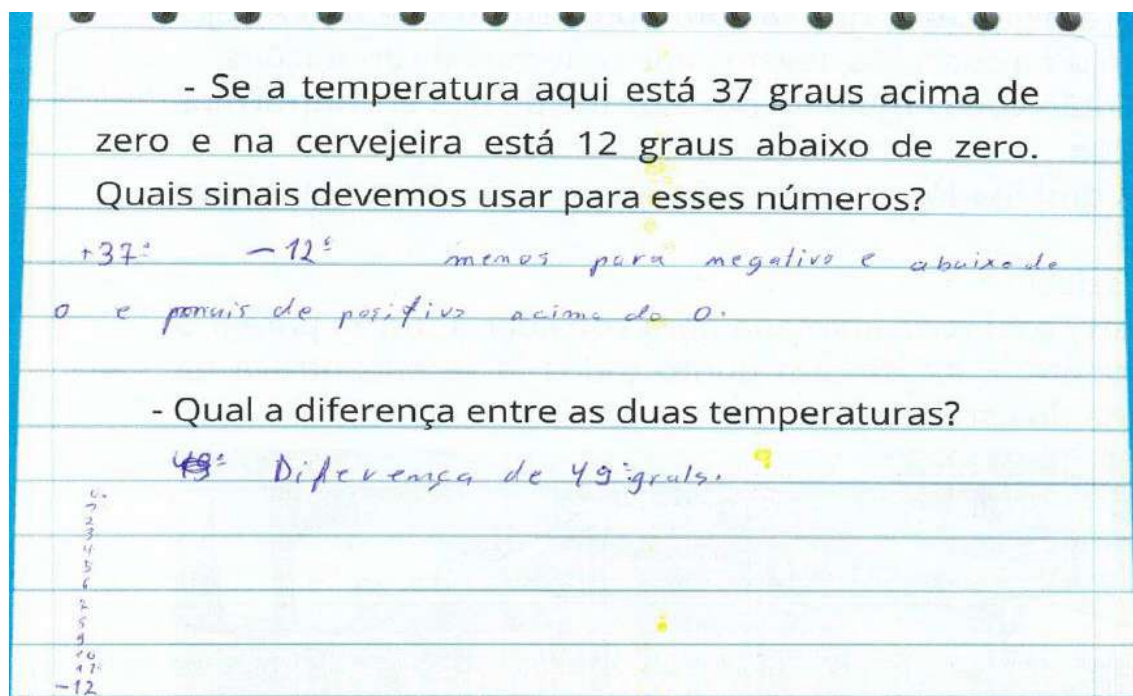 - Se a temperatura aqui está 37 graus acima de
zero e na cervejeira está 12 graus abaixo de zero.
Quais sinais devemos usar para esses números?
+37º -12º menos para megativo e abaixo de
0 e de positivo acima do 0.
- Qual a diferença entre as duas temperaturas?
Diferença de 49º grals.
0
1
2
3
4
5
6
7
8
9
10
11
-12